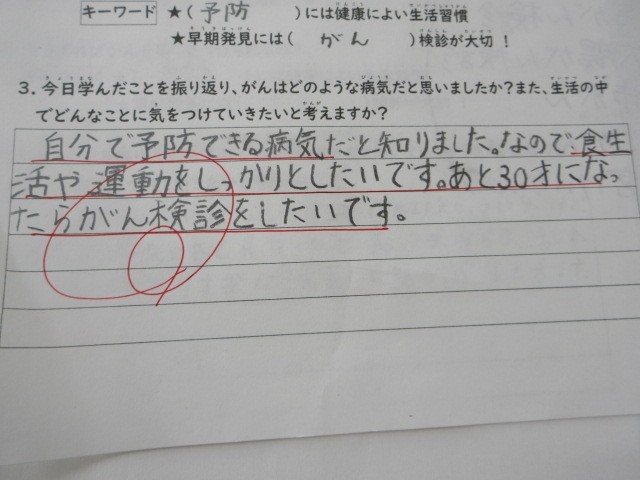 キーワード ★( 予防 )には健康によい生活習慣
★早期発見には( がん )検診が大切！
3．今日学んだことを振り返り、がんはどのような病気だと思いましたか？また、生活の中
でどんなことに気をつけていきたいと考えますか？
自分で予防できる病気だと知りました。なので、食生
活や運動をしっかりとしたいです。あと30才になっ
たらがん検診をしたいです。